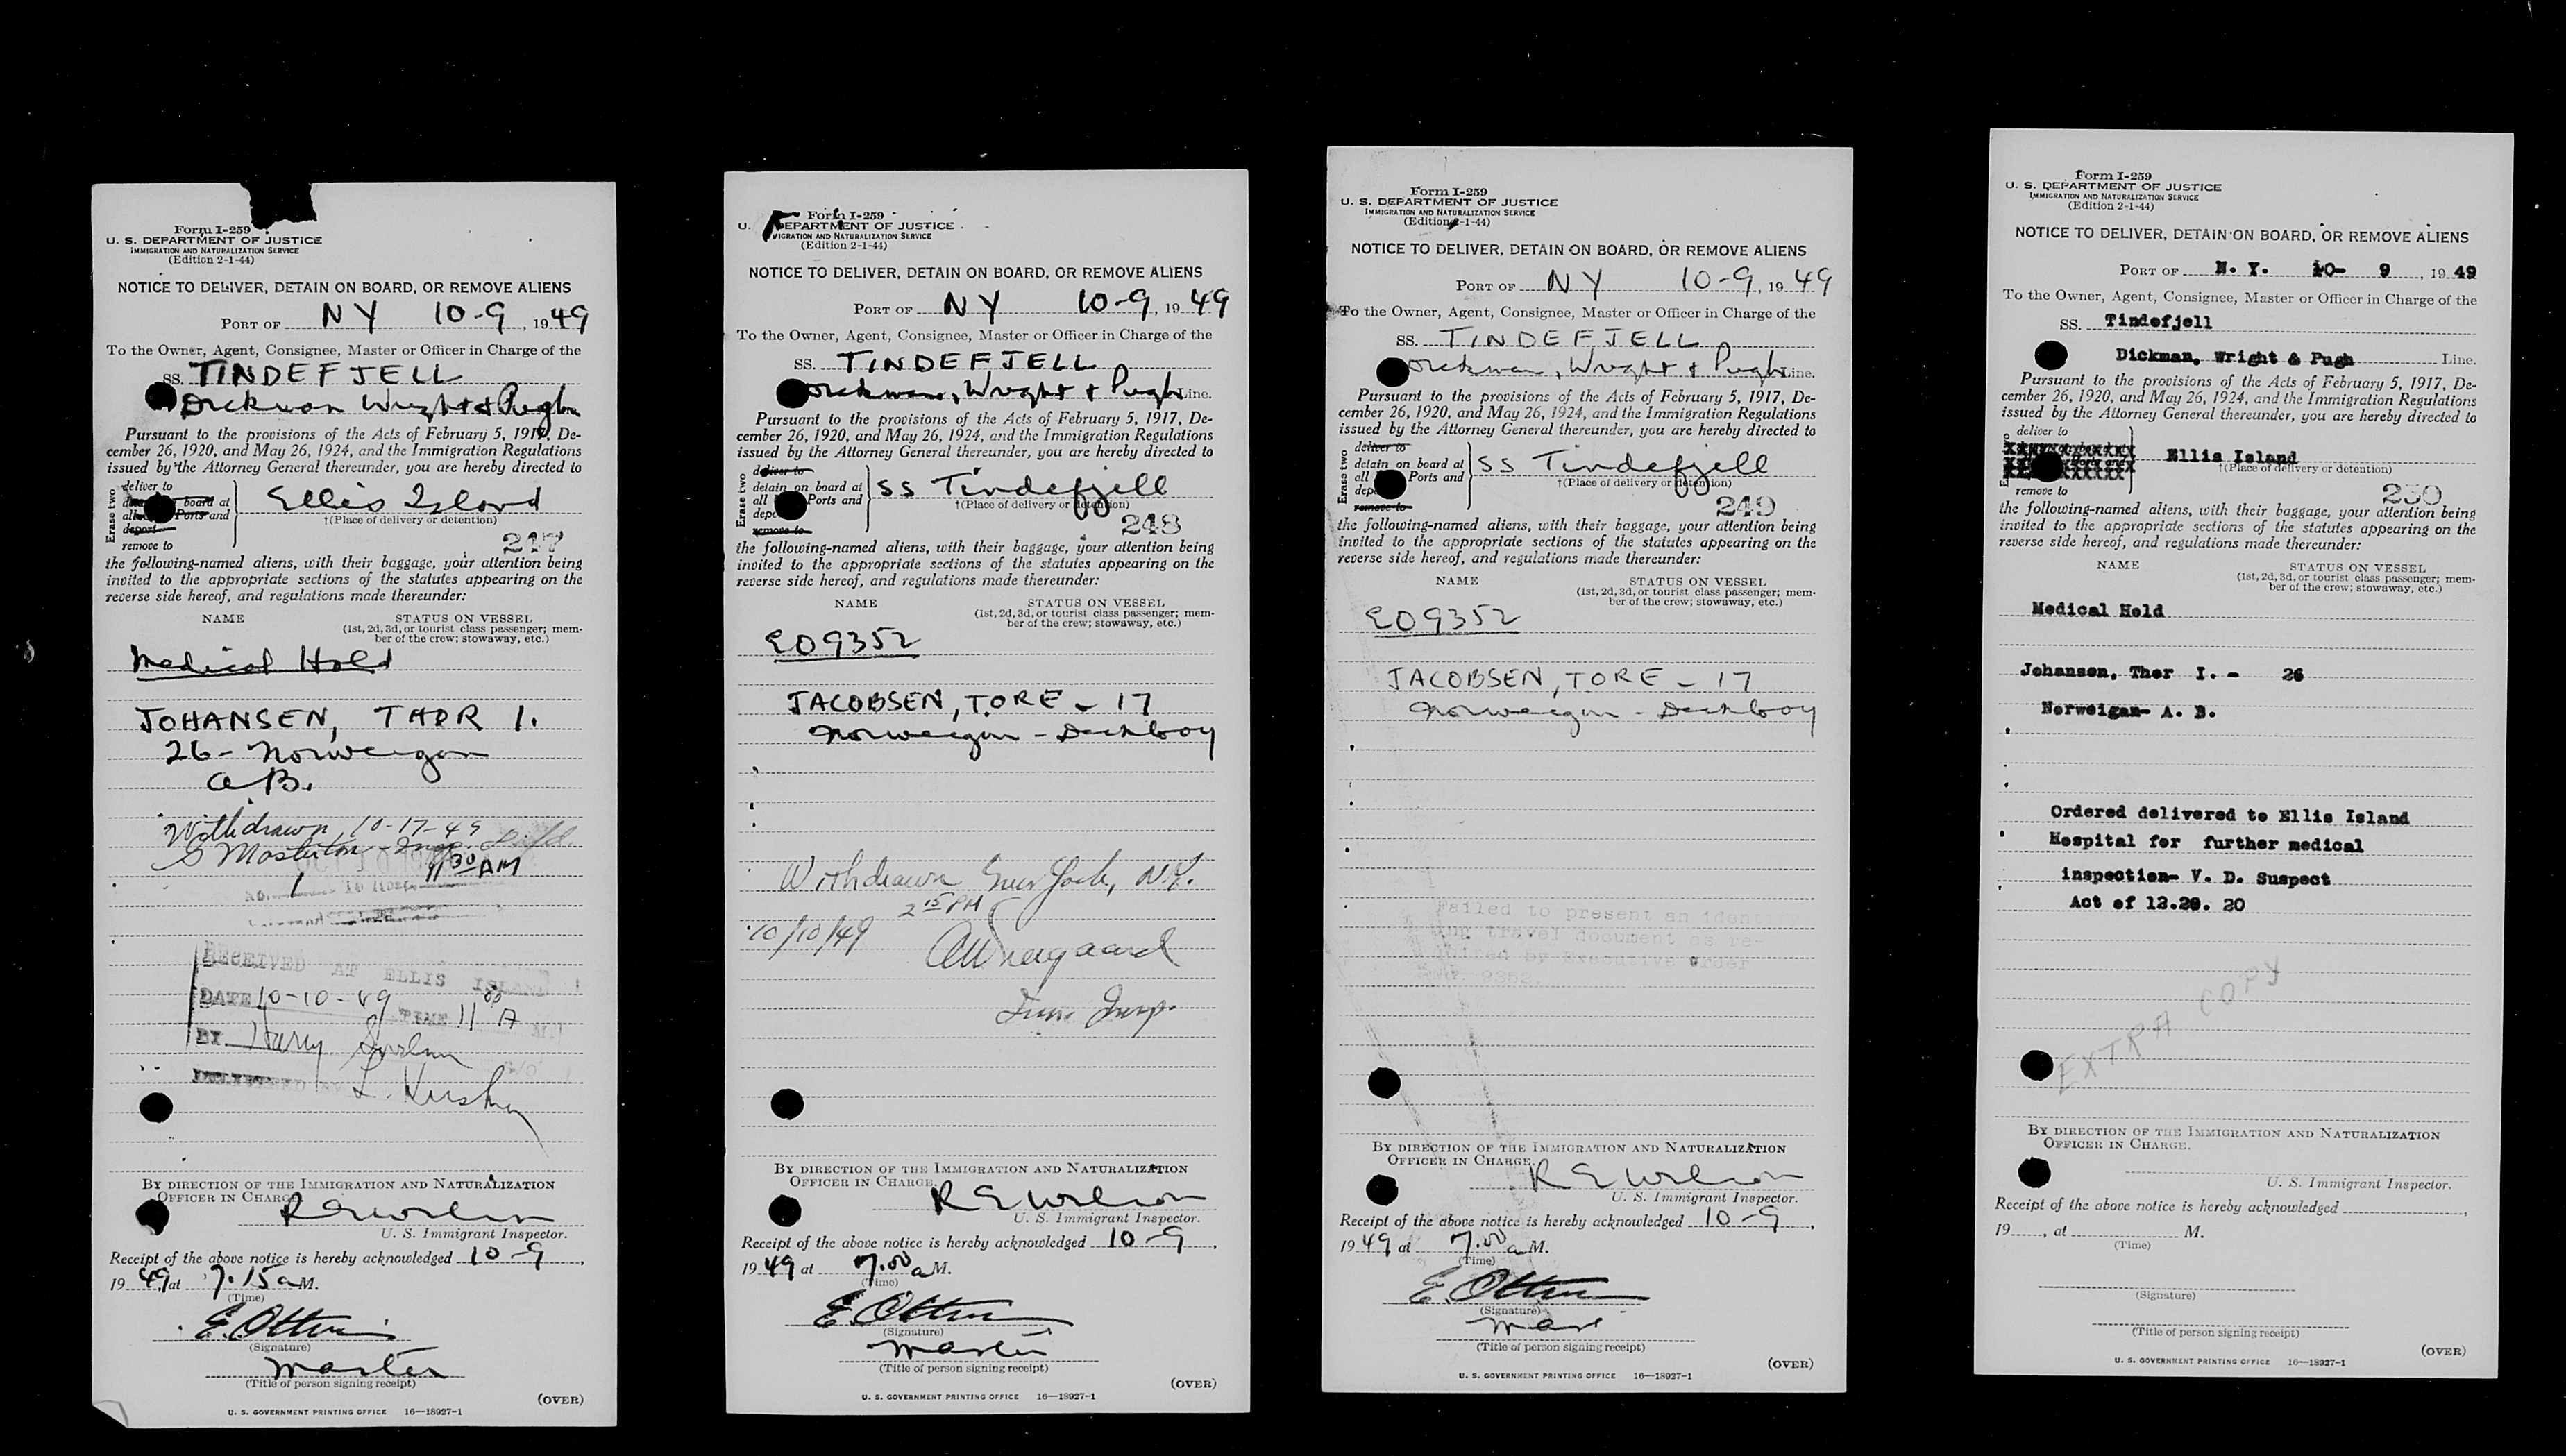 Form I-259
U. S. DEPARTMENT OF JUSTICE
IMMIGRATION AND NATURALIZATION SERVICE
(Edition 2-1-44)
NOTICE TO DELIVER, DETAIN ON BOARD, OR REMOVE ALIENS
PORT OF NY 10-9, 1949
To the Owner, Agent, Consignee, Master or Officer in Charge of the
SS. TINDEFJELL
Dickman Wright & Pugh
Pursuant to the provisions of the Acts of February 5, 1917, De-
cember 26, 1920, and May 26, 1924, and the Immigration Regulations
issued by the Attorney General thereunder, you are hereby directed to
Erase two
deliver to
board at
Ports and
deport
remove to
Ellis Island
†(Place of delivery or detention)
247
the following-named aliens, with their baggage, your attention being
invited to the appropriate sections of the statutes appearing on the
reverse side hereof, and regulations made thereunder:
NAME STATUS ON VESSEL
(1st, 2d, 3d, or tourist class passenger; mem-
ber of the crew; stowaway, etc.)
Medical Hold
JOHANSEN, THOR I.
26 - Norweigan
A.B.
Withdrawn 10-17-49
S Masterton - Insp.
11 30 AM
RECEIVED AT ELLIS ISLAND
DATE 10-10-49 TIME 11 00 A M
BY Harry
DELIVERED
BY DIRECTION OF THE IMMIGRATION AND NATURALIZATION
OFFICER IN CHARGE.
R E Wilson
U. S. Immigrant Inspector.
Receipt of the above notice is hereby acknowledged 10-9,
1949 at 7.15 a M.
(Time)
E. Otten
(Signature)
Master
(Title of person signing receipt)
(OVER)
U. S. GOVERNMENT PRINTING OFFICE 16—18927-1
Form I-259
U. DEPARTMENT OF JUSTICE
IGRATION AND NATURALIZATION SERVICE
(Edition 2-1-44)
NOTICE TO DELIVER, DETAIN ON BOARD, OR REMOVE ALIENS
PORT OF NY 10-9, 1949
To the Owner, Agent, Consignee, Master or Officer in Charge of the
SS. TINDEFJELL
Dickman, Wright & Pugh Line.
Pursuant to the provisions of the Acts of February 5, 1917, De-
cember 26, 1920, and May 26, 1924, and the Immigration Regulations
issued by the Attorney General thereunder, you are hereby directed to
Erase two
deliver to
detain on board at
all Ports and
depo
remove to
SS Tindefjell
†(Place of delivery or detention)
248
the following-named aliens, with their baggage, your attention being
invited to the appropriate sections of the statutes appearing on the
reverse side hereof, and regulations made thereunder:
NAME STATUS ON VESSEL
(1st, 2d, 3d, or tourist class passenger; mem-
ber of the crew; stowaway, etc.)
EO9352
JACOBSEN, TORE - 17
Norweigan - Deckboy
Withdrawn New York, N.Y.
2 15 PM
10/10/49
Imm. Insp.
BY DIRECTION OF THE IMMIGRATION AND NATURALIZATION
OFFICER IN CHARGE.
R E Wilson
U. S. Immigrant Inspector.
Receipt of the above notice is hereby acknowledged 10-9,
1949 at 7.00 a M.
(Time)
E. Otten
(Signature)
Master
(Title of person signing receipt)
(OVER)
U. S. GOVERNMENT PRINTING OFFICE 16—18927-1
Form I-259
U. S. DEPARTMENT OF JUSTICE
IMMIGRATION AND NATURALIZATION SERVICE
(Edition 2-1-44)
NOTICE TO DELIVER, DETAIN ON BOARD, OR REMOVE ALIENS
PORT OF NY 10-9, 1949
To the Owner, Agent, Consignee, Master or Officer in Charge of the
SS. TINDEFJELL
Dickman, Wright & Pugh Line.
Pursuant to the provisions of the Acts of February 5, 1917, De-
cember 26, 1920, and May 26, 1924, and the Immigration Regulations
issued by the Attorney General thereunder, you are hereby directed to
Erase two
deliver to
detain on board at
all Ports and
dep
remove to
SS Tindefjell
†(Place of delivery or detention)
249
the following-named aliens, with their baggage, your attention being
invited to the appropriate sections of the statutes appearing on the
reverse side hereof, and regulations made thereunder:
NAME STATUS ON VESSEL
(1st, 2d, 3d, or tourist class passenger; mem-
ber of the crew; stowaway, etc.)
EO9352
JACOBSEN, TORE - 17
Norweigan - Deckboy
Failed to present an identi-
ying travel document as re-
quired by Executive Order
9352.
BY DIRECTION OF THE IMMIGRATION AND NATURALIZATION
OFFICER IN CHARGE.
R E Wilson
U. S. Immigrant Inspector.
Receipt of the above notice is hereby acknowledged 10-9,
1949 at 7.00 a M.
(Time)
E. Otten
(Signature)
Mas
(Title of person signing receipt)
(OVER)
U. S. GOVERNMENT PRINTING OFFICE 16—18927-1
Form I-259
U. S. DEPARTMENT OF JUSTICE
IMMIGRATION AND NATURALIZATION SERVICE
(Edition 2-1-44)
NOTICE TO DELIVER, DETAIN ON BOARD, OR REMOVE ALIENS
PORT OF N. Y. 10- 9, 1949
To the Owner, Agent, Consignee, Master or Officer in Charge of the
SS. Tindefjell
Dickman, Wright & Pugh Line.
Pursuant to the provisions of the Acts of February 5, 1917, De-
cember 26, 1920, and May 26, 1924, and the Immigration Regulations
issued by the Attorney General thereunder, you are hereby directed to
deliver to
remove to
Ellis Island
†(Place of delivery or detention)
250
the following-named aliens, with their baggage, your attention being
invited to the appropriate sections of the statutes appearing on the
reverse side hereof, and regulations made thereunder:
NAME STATUS ON VESSEL
(1st, 2d, 3d, or tourist class passenger; mem-
ber of the crew; stowaway, etc.)
Medical Hold
Johansen, Thor I. - 26
Norweigan- A. B.
Ordered delivered to Ellis Island
Hospital for further medical
inspection- V. D. Suspect
Act of 12.28. 20
EXTRA COPY
BY DIRECTION OF THE IMMIGRATION AND NATURALIZATION
OFFICER IN CHARGE.
U. S. Immigrant Inspector.
Receipt of the above notice is hereby acknowledged
19 , at M.
(Time)
(Signature)
(Title of person signing receipt)
(OVER)
U. S. GOVERNMENT PRINTING OFFICE 16—18927-1